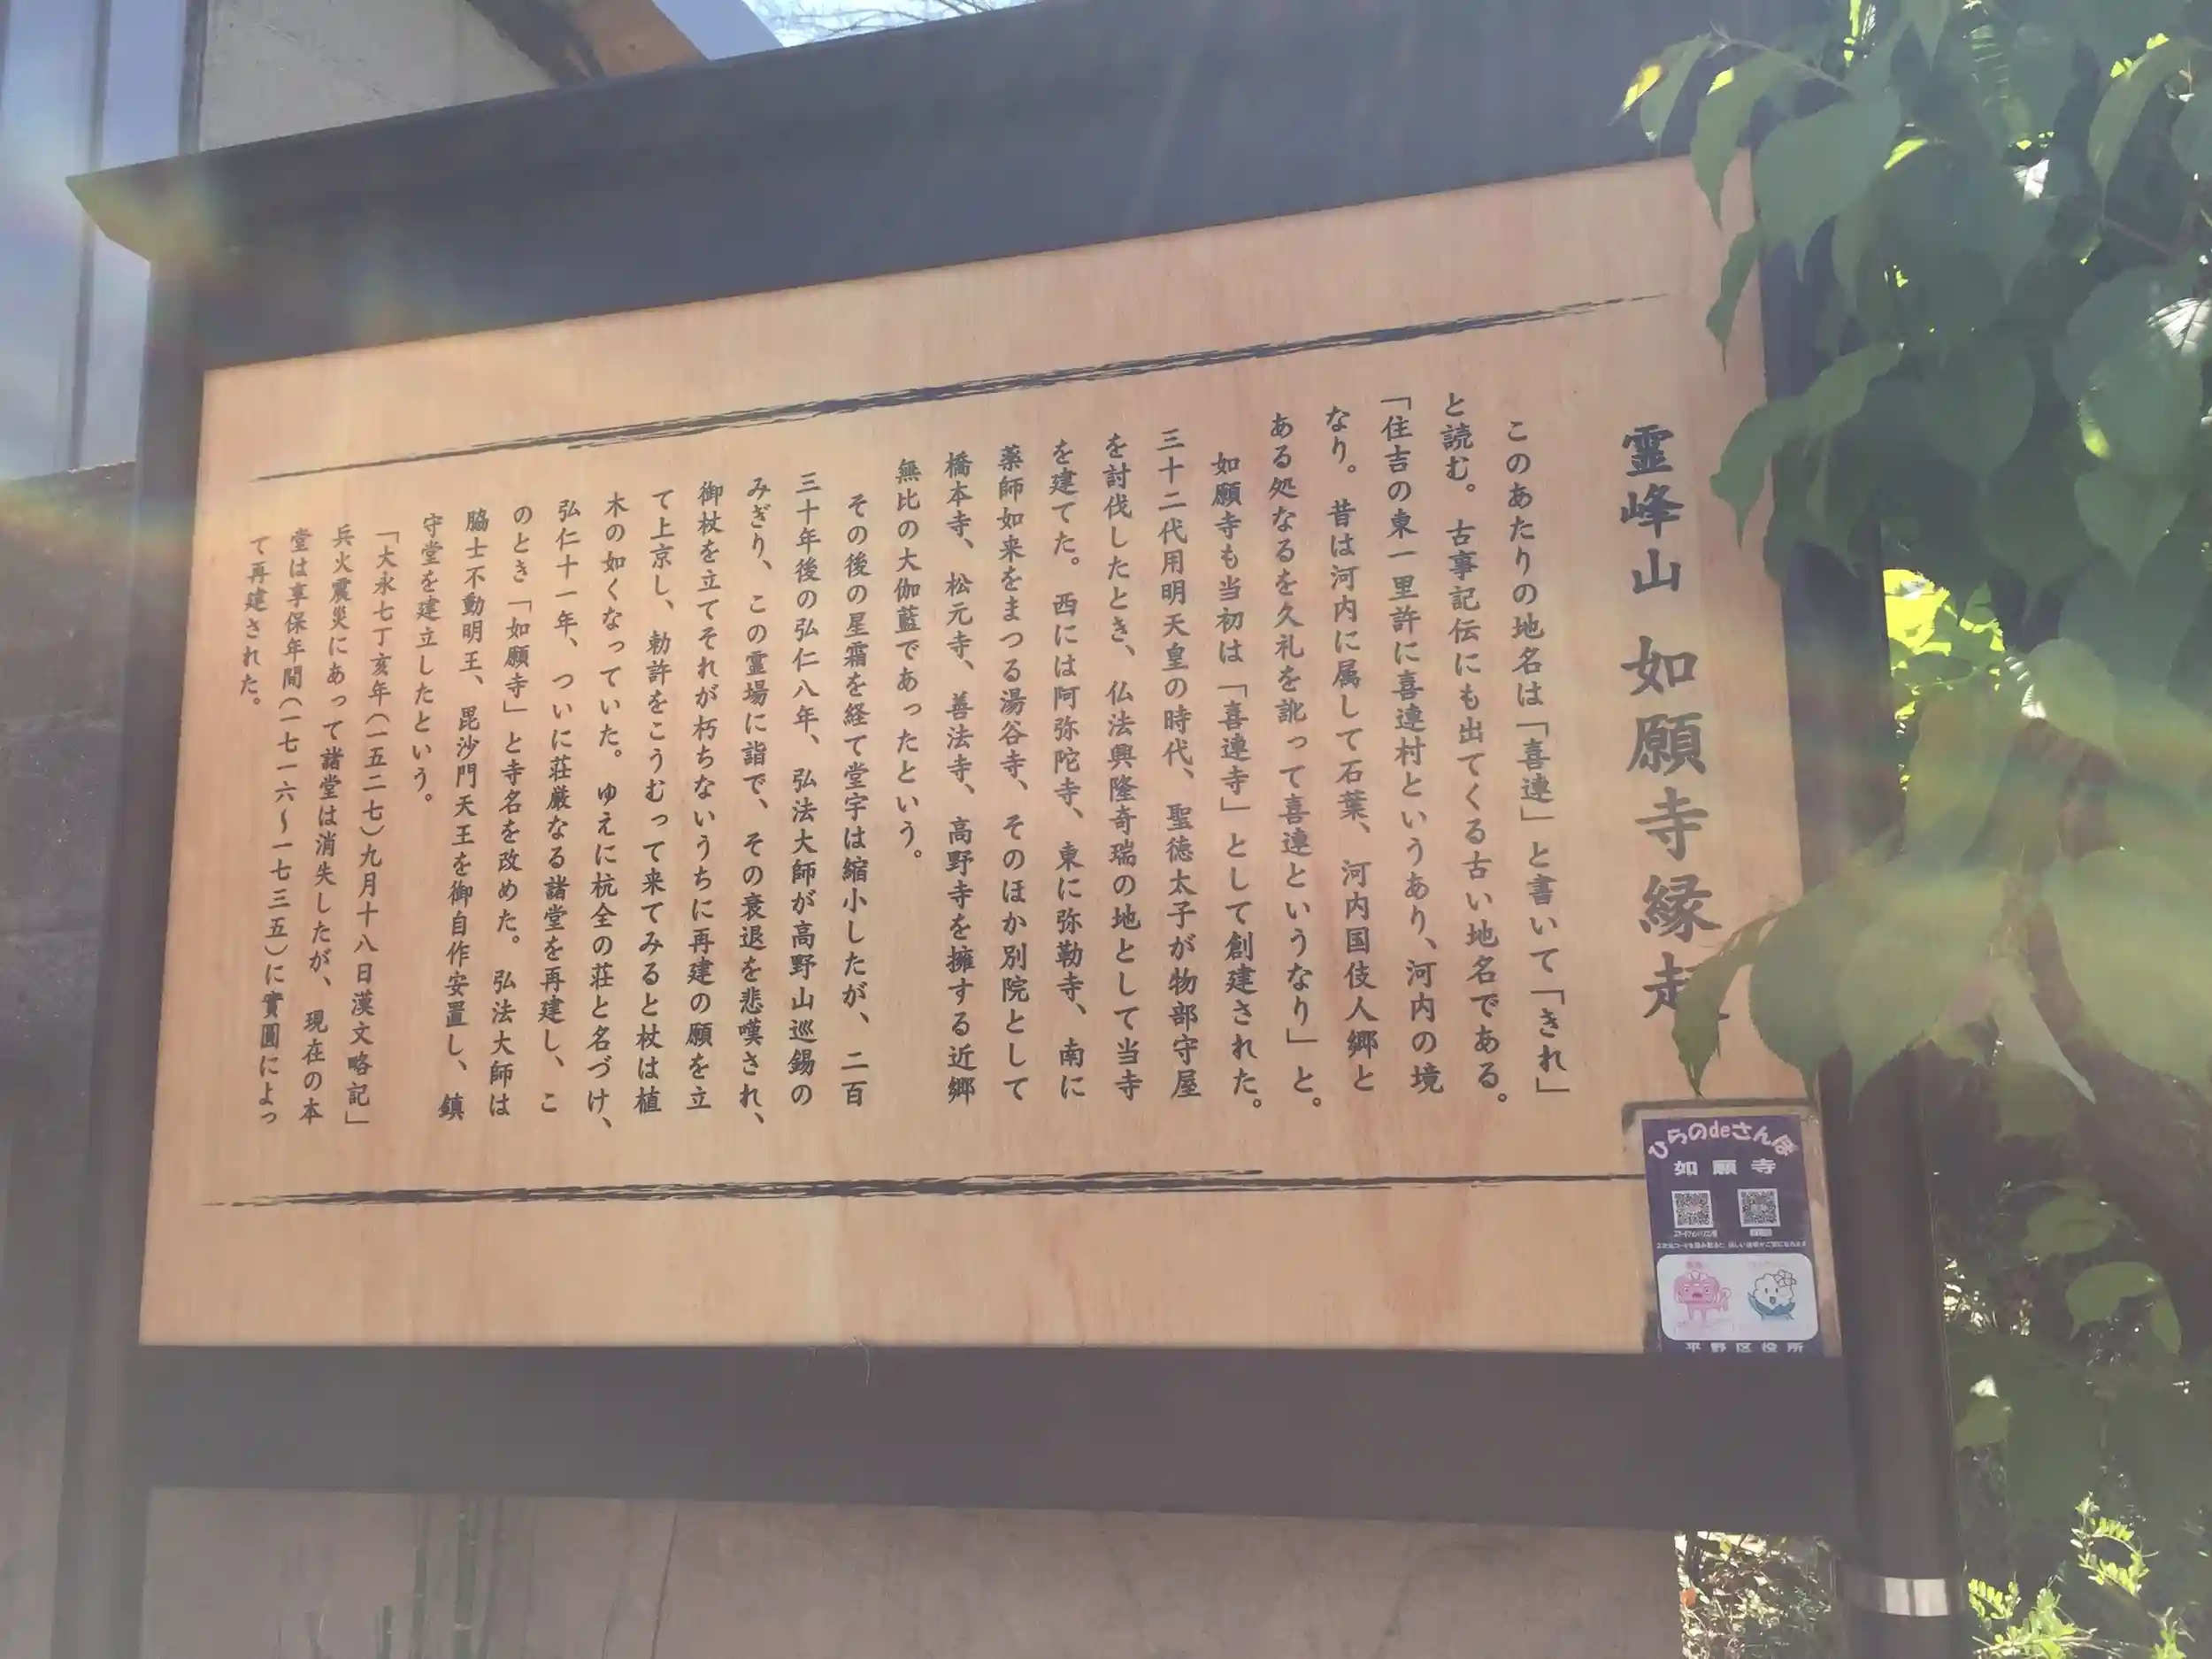 霊峰山 如願寺縁起
このあたりの地名は「喜連」と書いて「きれ」
と読む。古事記伝にも出てくる古い地名である。
「住吉の東一里許に喜連村というあり、河内の境
なり。昔は河内に属して石葉、河内国伎人郷と
ある処なるを久礼を訛って喜連というなり」と。
如願寺も当初は「喜連寺」として創建された。
三十二代用明天皇の時代、聖徳太子が物部守屋
を討伐したとき、仏法興隆奇瑞の地として当寺
を建てた。西には阿弥陀寺、東に弥勒寺、南に
薬師如来をまつる湯谷寺、そのほか別院として
橋本寺、松元寺、善法寺、高野寺を擁する近郷
無比の大伽藍であったという。
その後の星霜を経て堂宇は縮小したが、二百
三十年後の弘仁八年、弘法大師が高野山巡錫の
みぎり、この霊場に詣で、その衰退を悲嘆され、
御杖を立てそれが朽ちないうちに再建の願を立
て上京し、勅許をこうむって来てみると杖は植
木の如くなっていた。ゆえに杭全の荘と名づけ、
弘仁十一年、ついに荘厳なる諸堂を再建し、こ
のとき「如願寺」と寺名を改めた。弘法大師は
脇士不動明王、毘沙門天王を御自作安置し、鎮
守堂を建立したという。
「大永七丁亥年（一五二七）九月十八日漢文略記」
兵火震災にあって諸堂は消失したが、現在の本
堂は享保年間（一七一六～一七三五）に實圓によっ
て再建された。
ひらのdeさんぽ
如願寺
平野区役所